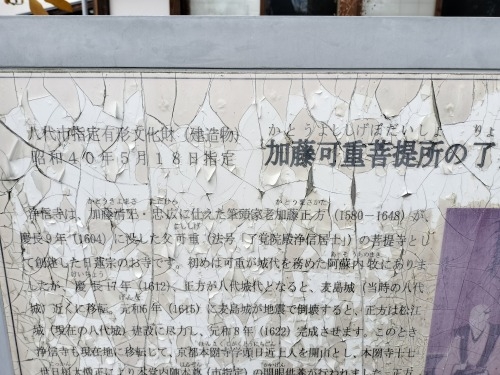 八代市指定有形文化財（建造物）
昭和40年5月18日指定
かとうよししげぼだいしょ りょ
加藤可重菩提所の了
かとうきよまさ ただひろ かとうまさかた
浄信寺は、加藤清正・忠広に仕えた筆頭家老加藤正方（1580－1648）が、
よししげ
慶長9年（1604）に没した父可重（法号「了覚院殿浄信居士」）の菩提寺とし
て創建した日蓮宗のお寺です。初めは可重が城代を務めた阿蘇内牧にありま
けいちょう
したが、慶長17年（1612）、正方が八代城代となると、麦島城（当時の八代
げんな
城）近くに移転。元和5年（1615）に麦島城が地震で倒壊すると、正方は松江
城（現在の八代城）建設に尽力し、元和8年（1622）完成させます。このとき
浄信寺も現在地に移転して、京都本圀寺学頭日近上人を開山とし、本圀寺